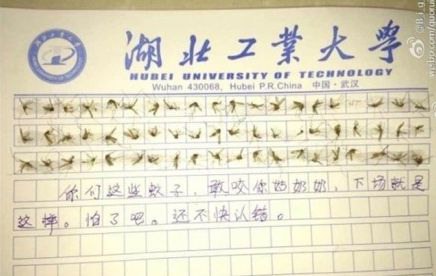 湖北工業大學
HUBEI UNIVERSITY OF TECHNOLOGY
Wuhan 430068, Hubei P.R.China 中国·武汉
你们这些蚊子，敢咬你奶奶，下场就是
这样。怕了吧。还不快认错。